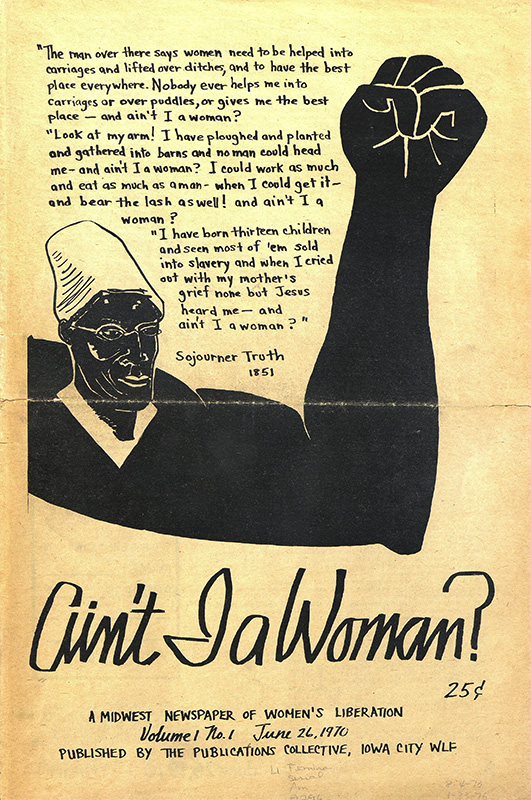 "The man over there says women need to be helped into
carriages and lifted over ditches, and to have the best
place everywhere. Nobody ever helps me into
carriages or over puddles, or gives me the best
place — and ain't I a woman?
"Look at my arm! I have ploughed and planted
and gathered into barns and no man could head
me - and ain't I a woman? I could work as much
and eat as much as a man - when I could get it —
and bear the lash as well! and ain't I a
woman?
"I have born thirteen children
and seen most of 'em sold
into slavery and when I cried
out with my mother's
grief none but Jesus
heard me — and
ain't I a woman?"
Sojourner Truth
1851
Ain't I a Woman?
25¢
A MIDWEST NEWSPAPER OF WOMEN'S LIBERATION
Volume 1 No. 1 June 26, 1970
PUBLISHED BY THE PUBLICATIONS COLLECTIVE, IOWA CITY WLF